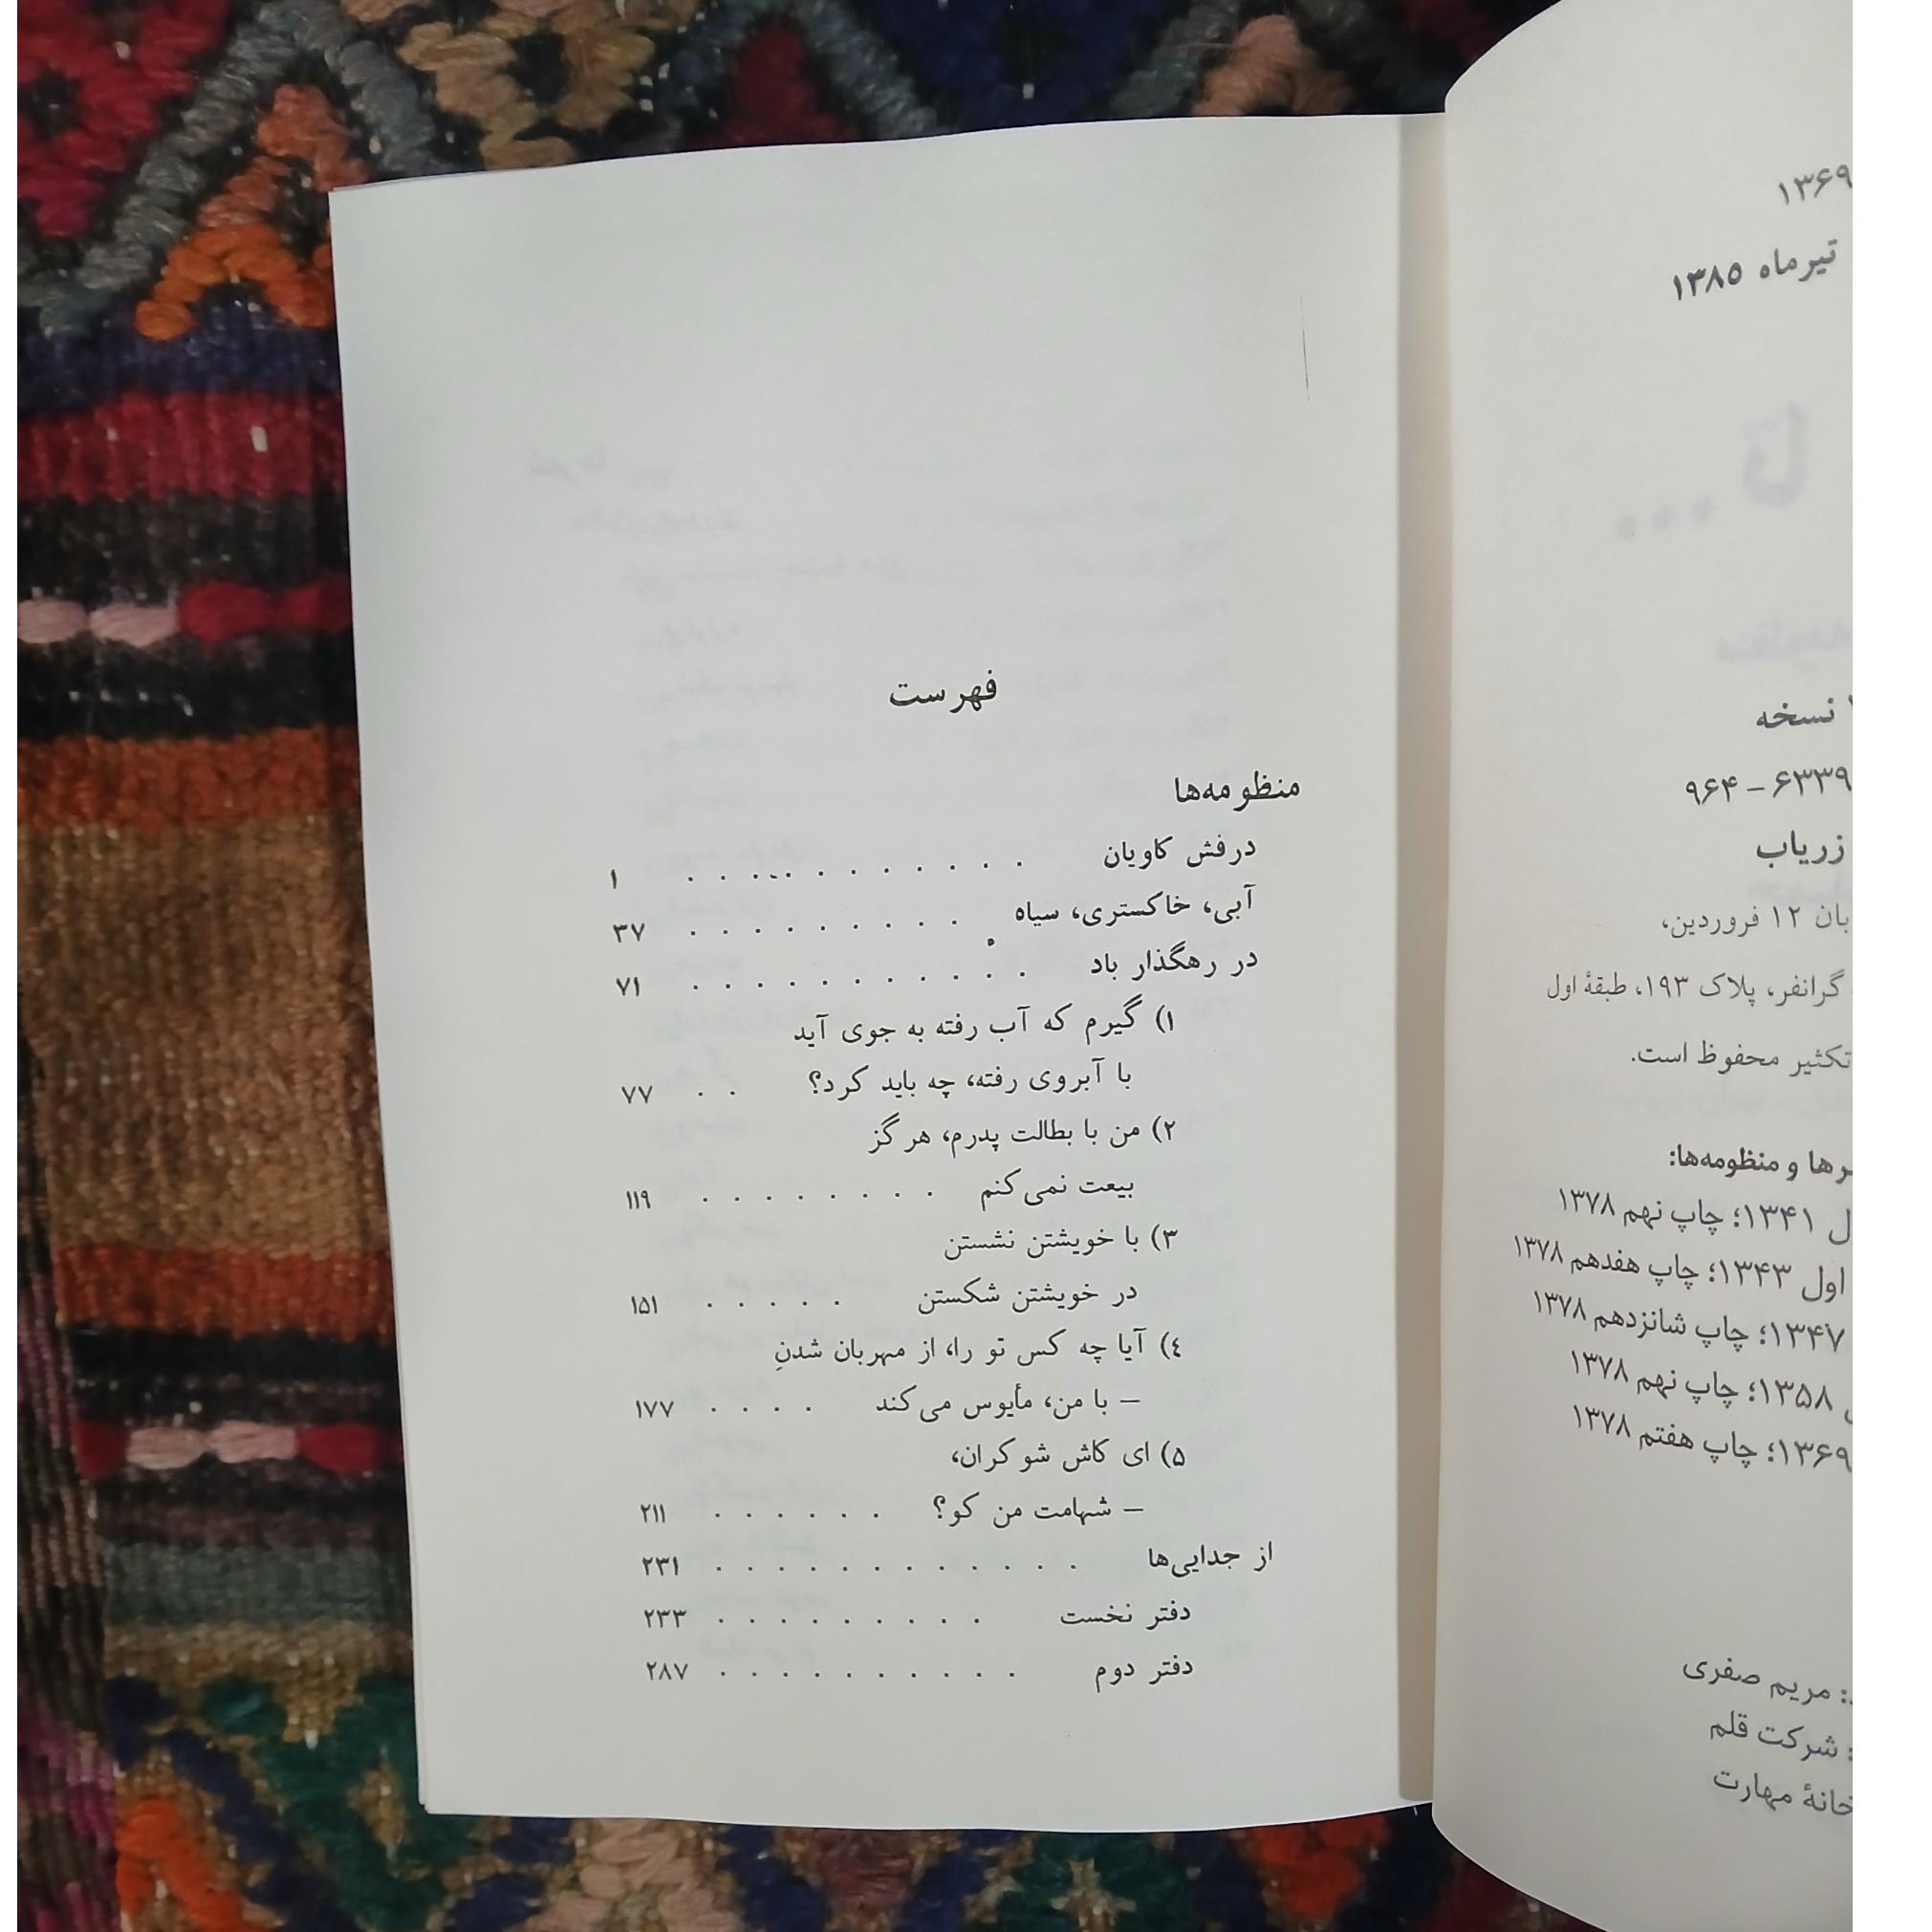 ۱۳۶۹
تیرماه ۱۳۸۵
نسخه
۹۶۴ – ۶۳۳۹
زریاب
۱۲ فروردین،
گرانفر، پلاک ۱۹۳، طبقهٔ اول
تکثیر محفوظ است.
و منظومه‌ها:
۱۳۴۱؛ چاپ نهم ۱۳۷۸
اول ۱۳۴۳؛ چاپ هفدهم ۱۳۷۸
۱۳۴۷؛ چاپ شانزدهم ۱۳۷۸
۱۳۵۸؛ چاپ نهم ۱۳۷۸
۱۳۶۹؛ چاپ هفتم ۱۳۷۸
مریم صفری
: شرکت قلم
مهارت
فهرست
منظومه‌ها
درفش کاویان . . . . . . . . . . . ۱
آبی، خاکستری، سیاه . . . . . . . . . ۳۷
در رهگذار باد . . . . . . . . . . . ۷۱
۱) گیرم که آب رفته به جوی آید
با آبروی رفته، چه باید کرد؟ . . ۷۷
۲) من با بطالت پدرم، هرگز
بیعت نمی‌کنم . . . . . . . . ۱۱۹
۳) با خویشتن نشستن
در خویشتن شکستن . . . . . ۱۵۱
٤) آیا چه کس تو را، از مهربان شدنِ
– با من، مأیوس می‌کند . . . . ۱۷۷
۵) ای کاش شوکران،
– شهامت من کو؟ . . . . . . ۲۱۱
از جدایی‌ها . . . . . . . . . . . . ۲۳۱
دفتر نخست . . . . . . . . . ۲۳۳
دفتر دوم . . . . . . . . . . ۲۸۷